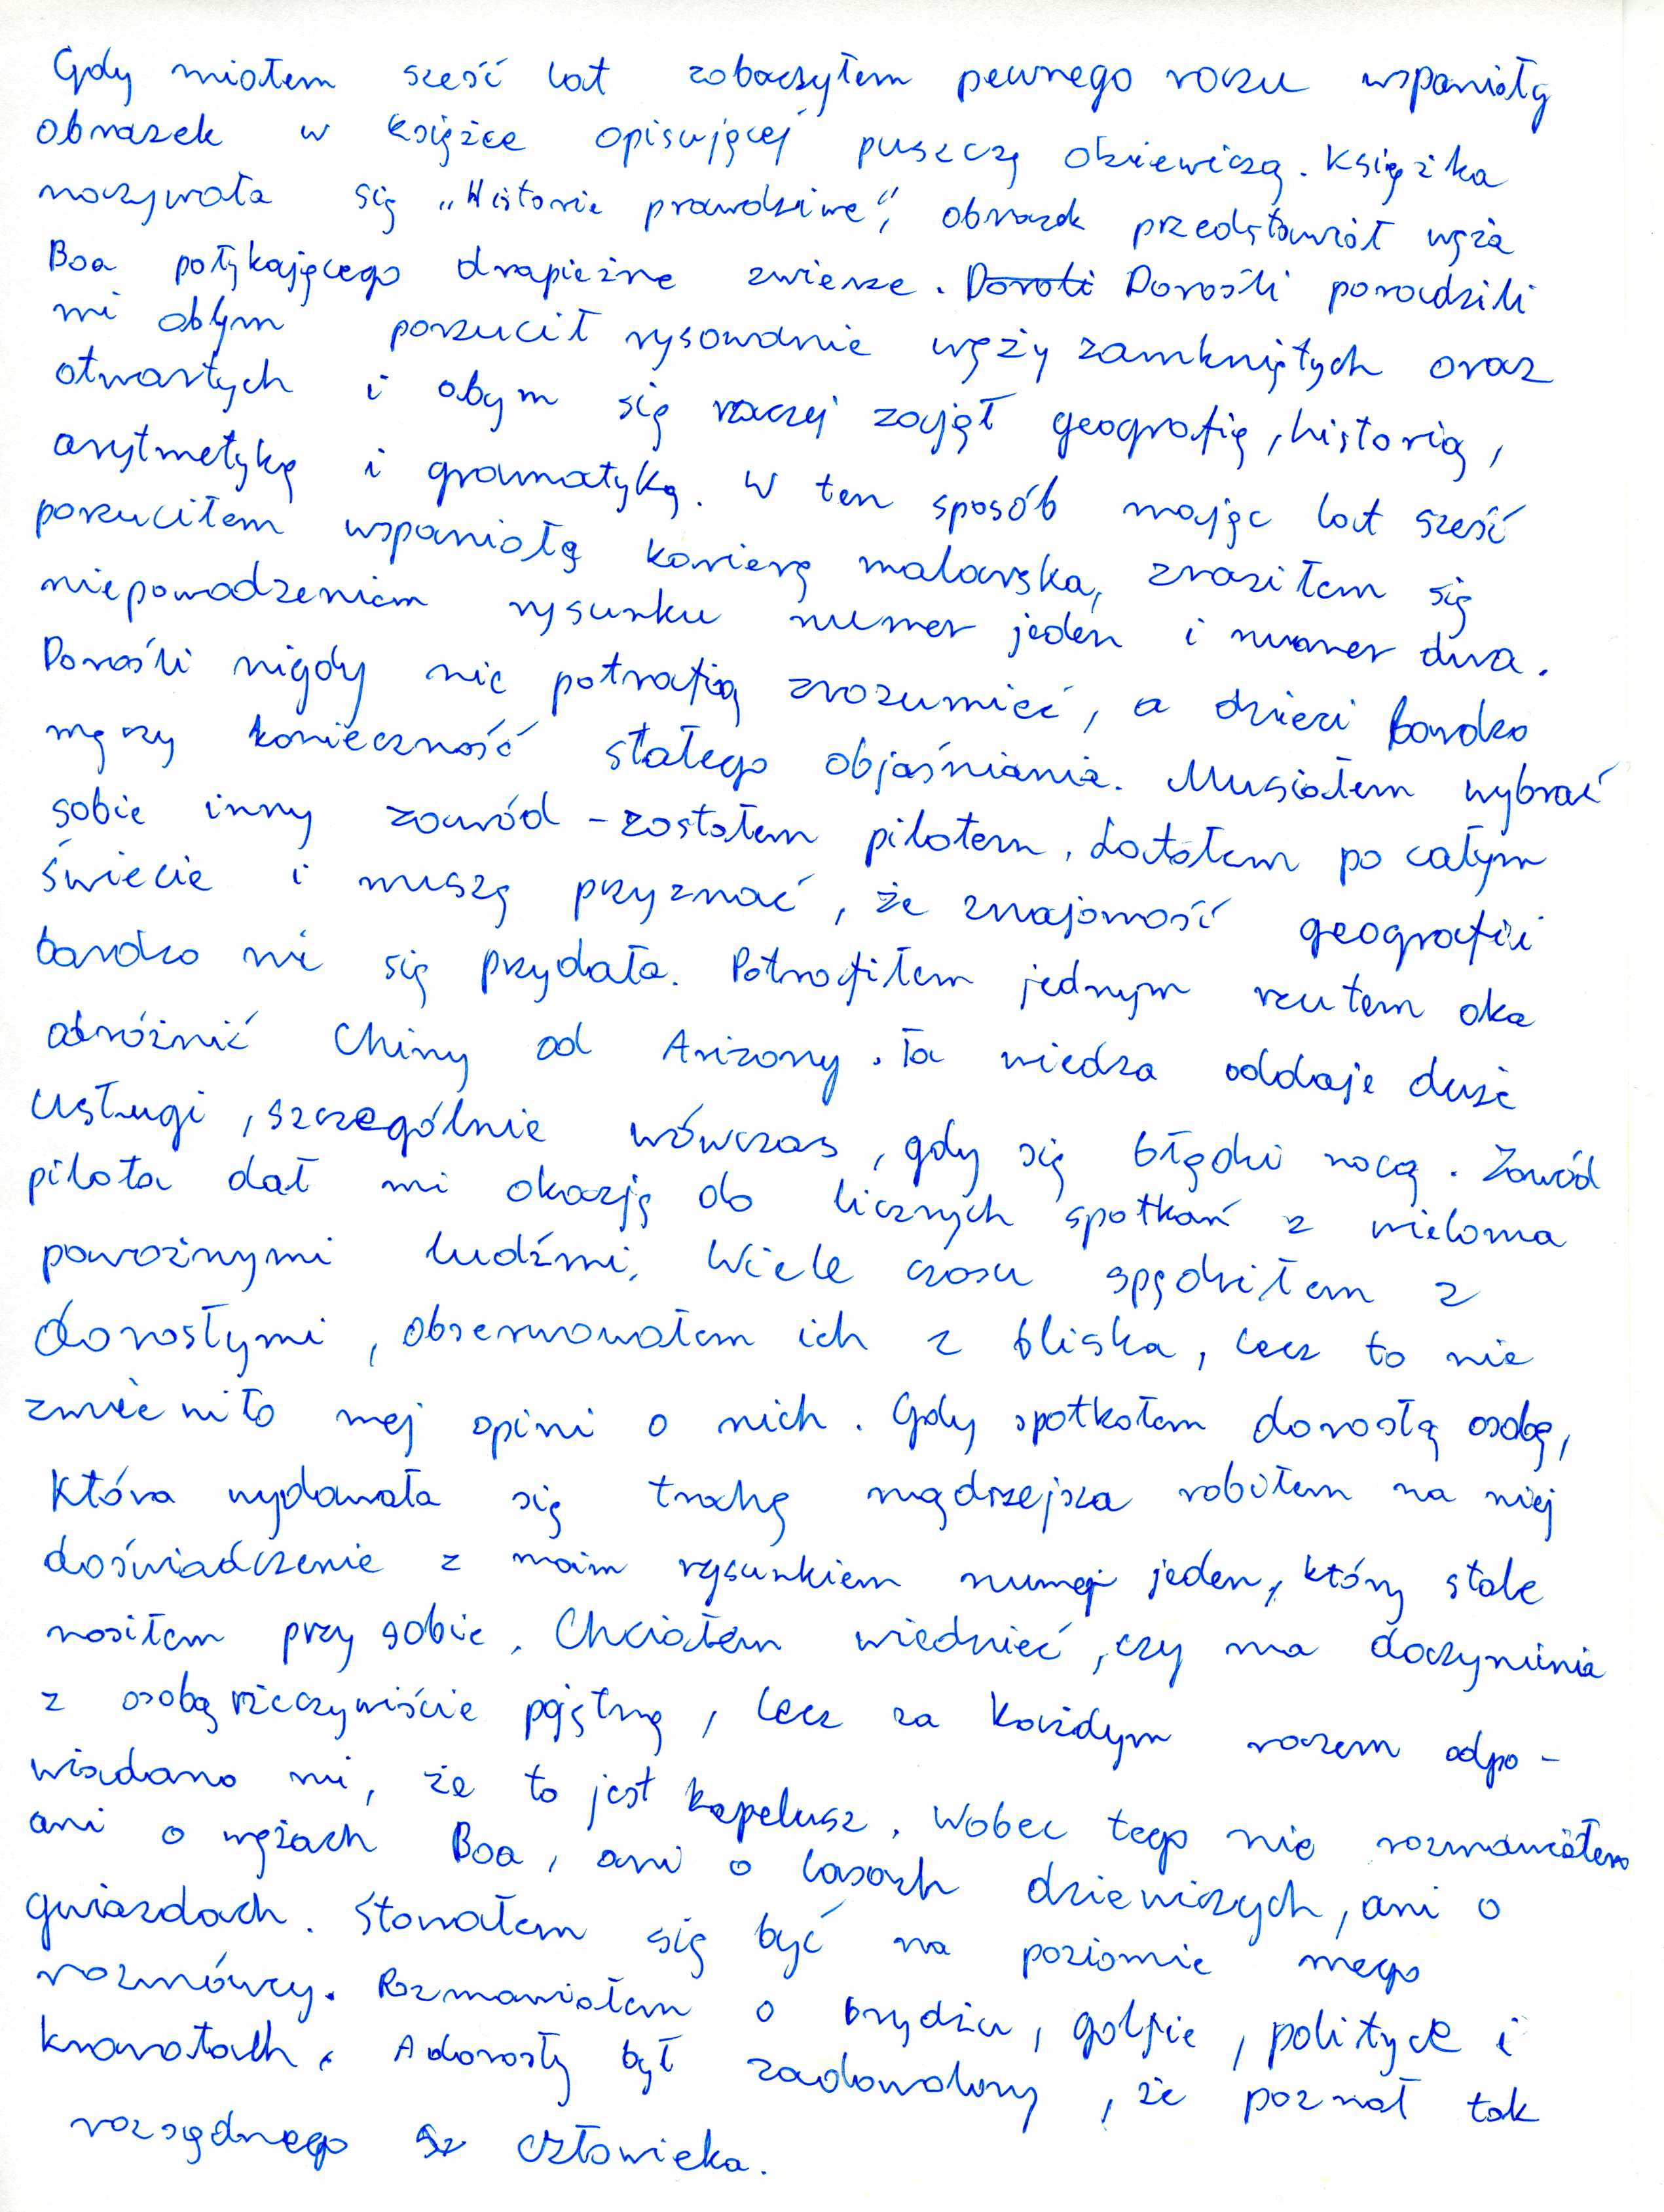 Gdy miałem sześć lat zobaczyłem pewnego razu wspaniały
obrazek w książce opisującej puszczę dziewiczą. Książka
nazywała się „Historie prawdziwe", obrazek przedstawiał węża
Boa połykającego drapieżne zwierze. Doroti Dorośli poradzili
mi abym porzucił rysowanie węży zamkniętych oraz
otwartych i abym się raczej zajął geografią, historią,
arytmetyką i gramatyką. W ten sposób mając lat sześć
porzuciłem wspaniałą karierę malarska, zraziłem się
niepowodzeniem rysunku numer jeden i numer dwa.
Dorośli nigdy nie potrafią zrozumieć, a dzieci bardzo
męczy konieczność stałego objaśniania. Musiałem wybrać
sobie inny zawód – zostałem pilotem. Latałem po całym
świecie i muszę przyznać, że znajomość geografii
bardzo mi się przydała. Potrafiłem jednym rzutem oka
odróżnić Chiny od Arizony. Ta wiedza oddaje duże
usługi, szczególnie wówczas, gdy się błądzi nocą. Zawód
pilota dał mi okazję do licznych spotkań z wieloma
poważnymi ludźmi. Wiele czasu spędziłem z
dorosłymi, obserwowałem ich z bliska, lecz to nie
zmieniło mej opini o nich. Gdy spotkałem dorosłą osobę,
która wydawała się trochę mądrzejsza robiłem na niej
doświadczenie z moim rysunkiem numer jeden, który stale
nosiłem przy sobie. Chciałem wiedzieć, czy ma doczynienia
z osobą rzeczywiście pojętną, lecz za każdym razem odpo-
wiadano mi, że to jest kapelusz. Wobec tego nie rozmawiałem
ani o wężach Boa, ani o lasach dziewiczych, ani o
gwiazdach. Starałem się być na poziomie mego
rozmówcy. Rozmawiałem o brydżu, golfie, polityce i
krawatach. A dorosły był zadowolony, że poznał tak
rozsądnego sz człowieka.